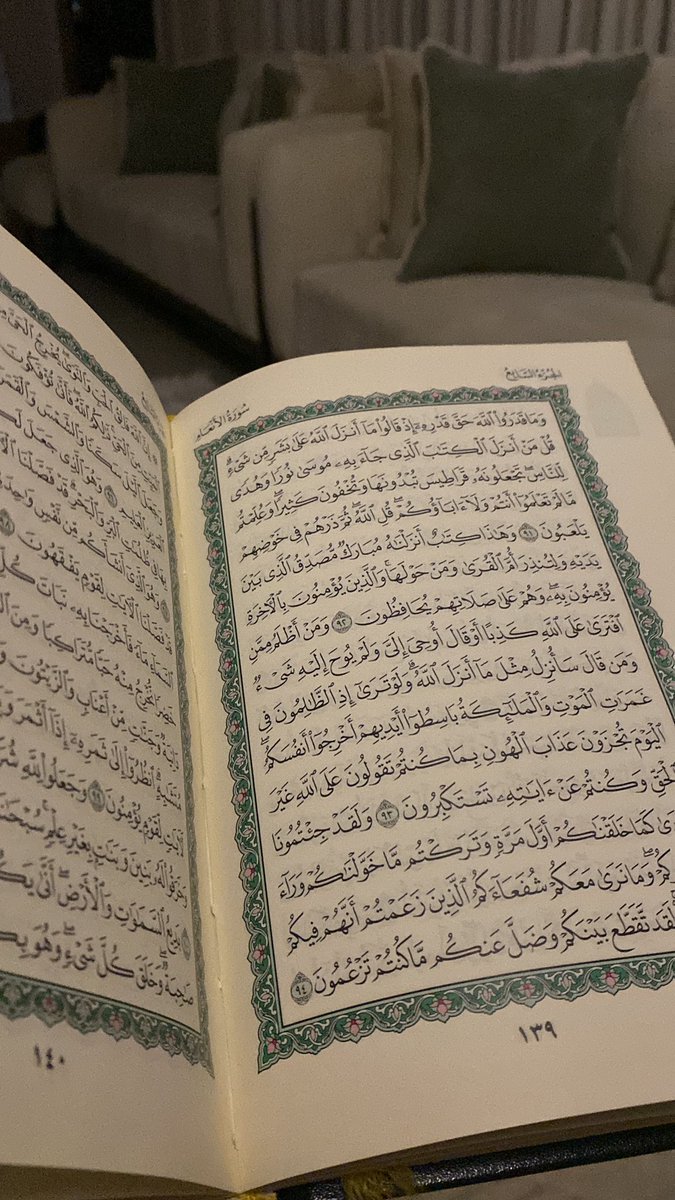 الجزء السابع
سورة الأنعام
وَمَا قَدَرُوا۟ ٱللَّهَ حَقَّ قَدْرِهِۦٓ إِذْ قَالُوا۟ مَآ أَنزَلَ ٱللَّهُ عَلَىٰ بَشَرٍ مِّن شَىْءٍۗ
قُلْ مَنْ أَنزَلَ ٱلْكِتَٰبَ ٱلَّذِى جَآءَ بِهِۦ مُوسَىٰ نُورًا وَهُدًى
لِّلنَّاسِۖ تَجْعَلُونَهُۥ قَرَاطِيسَ تُبْدُونَهَا وَتُخْفُونَ كَثِيرًاۖ وَعُلِّمْتُم
مَّا لَمْ تَعْلَمُوٓا۟ أَنتُمْ وَلَآ ءَابَآؤُكُمْۖ قُلِ ٱللَّهُۖ ثُمَّ ذَرْهُمْ فِى خَوْضِهِمْ
يَلْعَبُونَ ٩١ وَهَٰذَا كِتَٰبٌ أَنزَلْنَٰهُ مُبَارَكٌ مُّصَدِّقُ ٱلَّذِى بَيْنَ
يَدَيْهِ وَلِتُنذِرَ أُمَّ ٱلْقُرَىٰ وَمَنْ حَوْلَهَاۚ وَٱلَّذِينَ يُؤْمِنُونَ بِٱلْءَاخِرَةِ
يُؤْمِنُونَ بِهِۦۖ وَهُمْ عَلَىٰ صَلَاتِهِمْ يُحَافِظُونَ ٩٢ وَمَنْ أَظْلَمُ مِمَّنِ
ٱفْتَرَىٰ عَلَى ٱللَّهِ كَذِبًا أَوْ قَالَ أُوحِىَ إِلَىَّ وَلَمْ يُوحَ إِلَيْهِ شَىْءٌ
وَمَن قَالَ سَأُنزِلُ مِثْلَ مَآ أَنزَلَ ٱللَّهُۗ وَلَوْ تَرَىٰٓ إِذِ ٱلظَّٰلِمُونَ فِى
غَمَرَٰتِ ٱلْمَوْتِ وَٱلْمَلَٰٓئِكَةُ بَاسِطُوٓا۟ أَيْدِيهِمْ أَخْرِجُوٓا۟ أَنفُسَكُمُۖ
ٱلْيَوْمَ تُجْزَوْنَ عَذَابَ ٱلْهُونِ بِمَا كُنتُمْ تَقُولُونَ عَلَى ٱللَّهِ غَيْرَ
ٱلْحَقِّ وَكُنتُمْ عَنْ ءَايَٰتِهِۦ تَسْتَكْبِرُونَ ٩٣ وَلَقَدْ جِئْتُمُونَا
كَمَا خَلَقْنَٰكُمْ أَوَّلَ مَرَّةٍ وَتَرَكْتُم مَّا خَوَّلْنَٰكُمْ وَرَآءَ
وَمَا نَرَىٰ مَعَكُمْ شُفَعَآءَكُمُ ٱلَّذِينَ زَعَمْتُمْ أَنَّهُمْ فِيكُمْ
لَقَد تَّقَطَّعَ بَيْنَكُمْ وَضَلَّ عَنكُم مَّا كُنتُمْ تَزْعُمُونَ ٩٤
١٣٩
إِنَّ ٱللَّهَ فَالِقُ ٱلْحَبِّ وَٱلنَّوَىٰۖ يُخْرِجُ ٱلْحَىَّ
ٱلْمَيِّتِ مِنَ ٱلْحَىِّۚ ذَٰلِكُمُ ٱللَّهُۖ فَأَنَّىٰ تُؤْفَكُونَ
وَجَعَلَ ٱلَّيْلَ سَكَنًا وَٱلشَّمْسَ وَٱلْقَمَرَ
ٱلْعَزِيزِ ٱلْعَلِيمِ ٩٦ وَهُوَ ٱلَّذِى جَعَلَ
بِهَا فِى ظُلُمَٰتِ ٱلْبَرِّ وَٱلْبَحْرِۗ قَدْ فَصَّلْنَا
وَهُوَ ٱلَّذِىٓ أَنشَأَكُم مِّن نَّفْسٍ وَٰحِدَةٍ
قَدْ فَصَّلْنَا ٱلْءَايَٰتِ لِقَوْمٍ يَفْقَهُونَ ٩٨
ٱلسَّمَآءِ مَآءً فَأَخْرَجْنَا بِهِۦ نَبَاتَ كُلِّ
خَضِرًا نُّخْرِجُ مِنْهُ حَبًّا مُّتَرَاكِبًا وَمِنَ
دَانِيَةٌ وَجَنَّٰتٍ مِّنْ أَعْنَابٍ وَٱلزَّيْتُونَ
مُتَشَٰبِهٍۗ ٱنظُرُوٓا۟ إِلَىٰ ثَمَرِهِۦٓ إِذَآ أَثْمَرَ
لَءَايَٰتٍ لِّقَوْمٍ يُؤْمِنُونَ ٩٩ وَجَعَلُوا۟ لِلَّهِ
وَخَرَقُوا۟ لَهُۥ بَنِينَ وَبَنَٰتٍۭ بِغَيْرِ عِلْمٍۚ
بَدِيعُ ٱلسَّمَٰوَٰتِ وَٱلْأَرْضِۖ أَنَّىٰ
صَٰحِبَةٌۖ وَخَلَقَ كُلَّ شَىْءٍۖ وَهُوَ
١٤٠